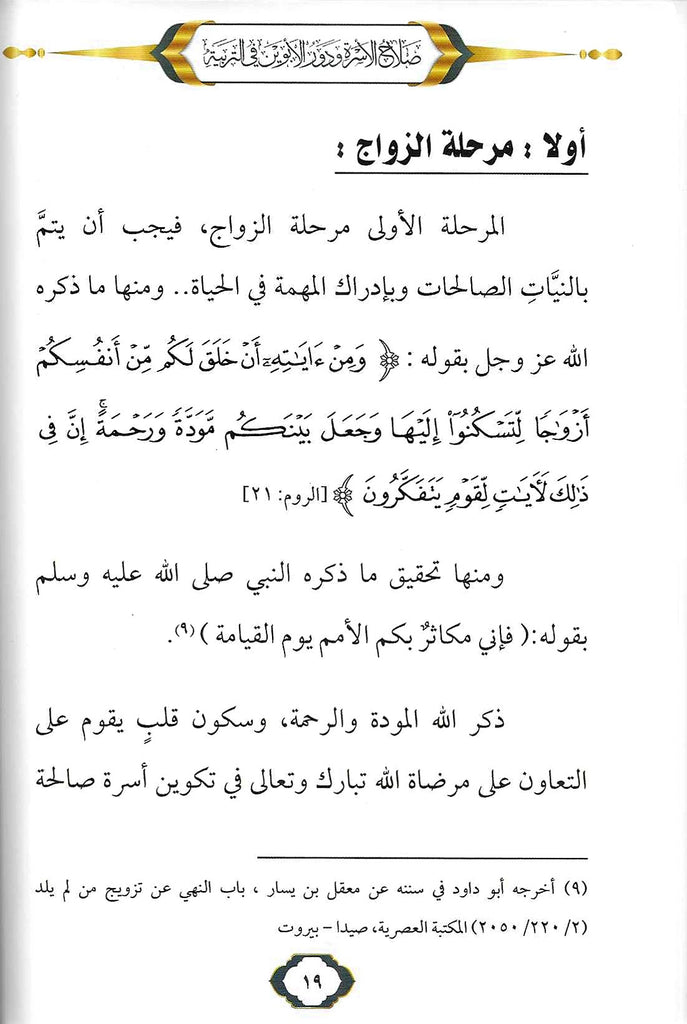 صلاح الأسرة ودور الأبوين في التربية
أولا : مرحلة الزواج :
المرحلة الأولى مرحلة الزواج، فيجب أن يتمَّ
بالنيَّاتِ الصالحات وبإدراك المهمة في الحياة.. ومنها ما ذكره
الله عز وجل بقوله : ﴿ وَمِنْ ءَايَٰتِهِۦٓ أَنْ خَلَقَ لَكُم مِّنْ أَنفُسِكُمْ
أَزْوَٰجًا لِّتَسْكُنُوٓا۟ إِلَيْهَا وَجَعَلَ بَيْنَكُم مَّوَدَّةً وَرَحْمَةً ۚ إِنَّ فِى
ذَٰلِكَ لَـَٔايَٰتٍ لِّقَوْمٍ يَتَفَكَّرُونَ ﴾ [الروم: ٢١]
ومنها تحقيق ما ذكره النبي صلى الله عليه وسلم
بقوله:( فإني مكاثرٌ بكم الأمم يوم القيامة )(٩).
ذكر الله المودة والرحمة، وسكون قلبٍ يقوم على
التعاون على مرضاة الله تبارك وتعالى في تكوين أسرة صالحة
(٩) أخرجه أبو داود في سننه عن معقل بن يسار ، باب النهي عن تزويج من لم يلد
(٢/ ٢٢٠/ ٢٠٥٠) المكتبة العصرية، صيدا – بيروت
١٩